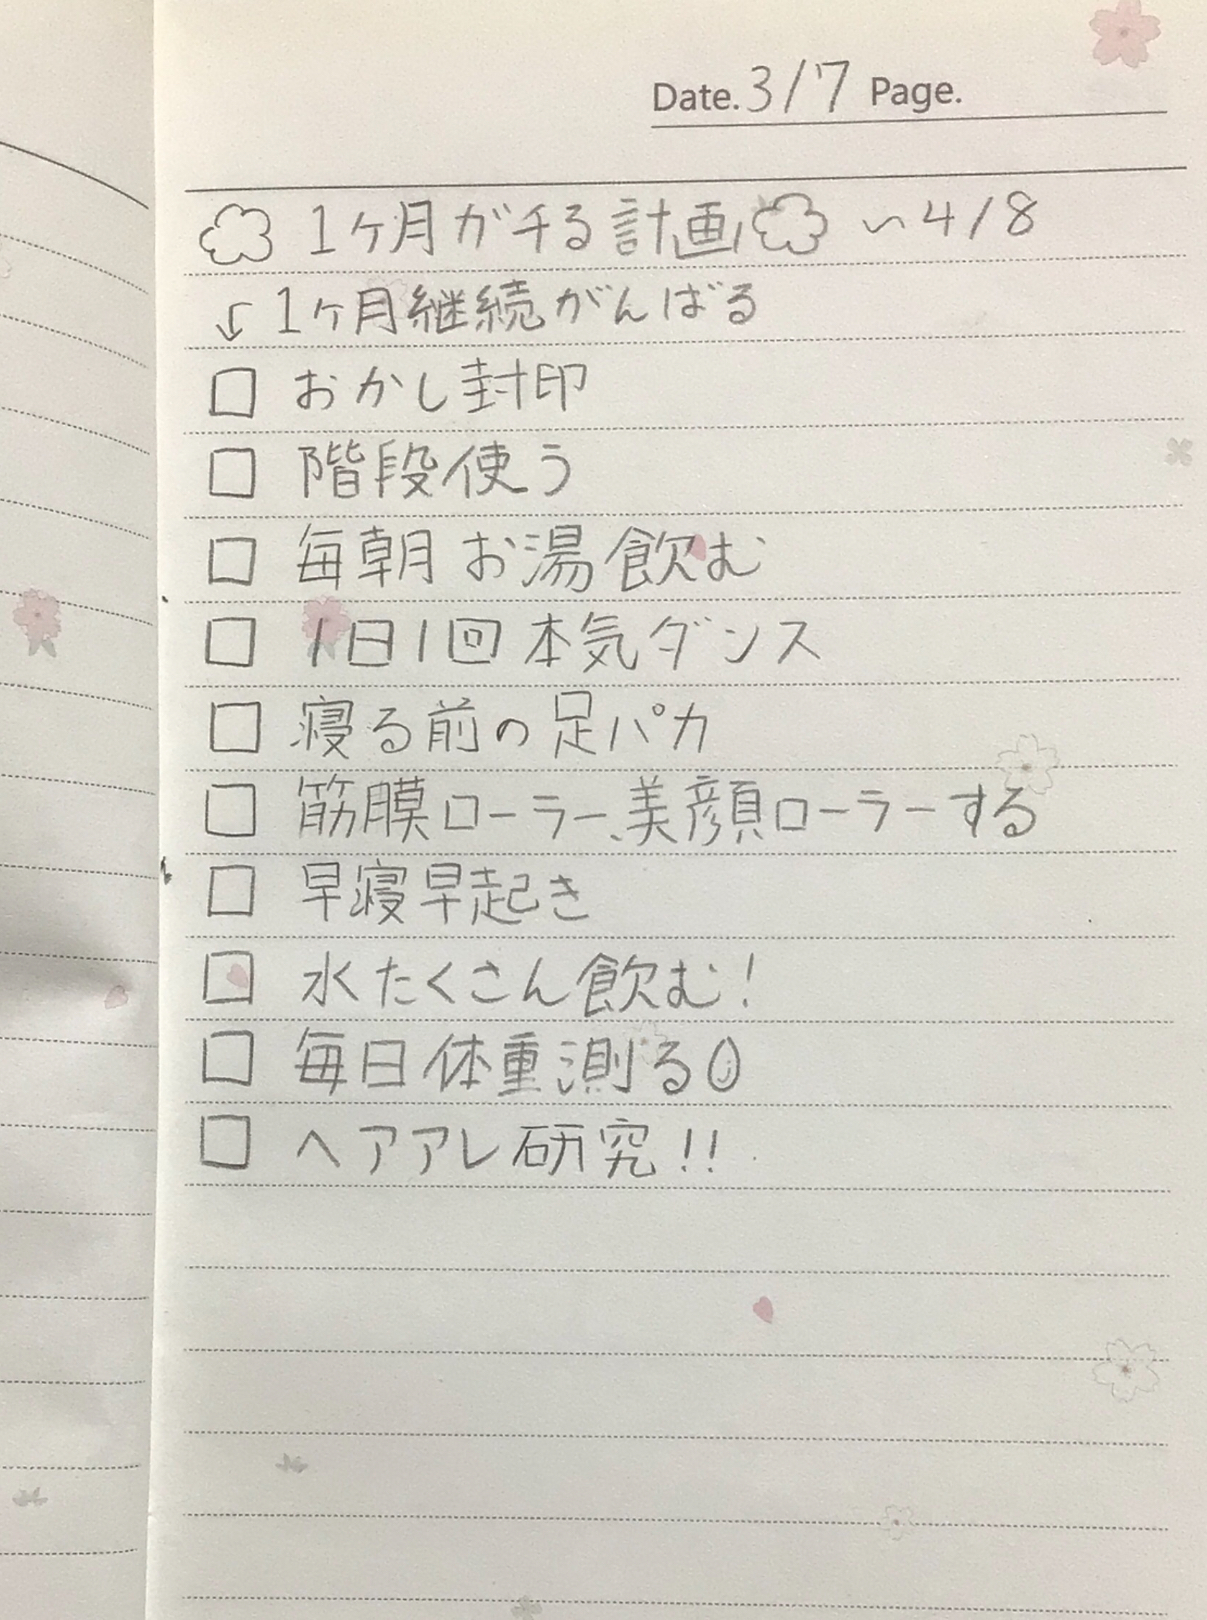 Date. 3/7 Page.
1ヶ月ガチる計画 ~4/8
↓1ヶ月継続がんばる
□ おかし封印
□ 階段使う
□ 毎朝お湯飲む
□ 1日1回本気ダンス
□ 寝る前の足パカ
□ 筋膜ローラー、美顔ローラーする
□ 早寝早起き
□ 水たくさん飲む!
□ 毎日体重測る
□ ヘアアレ研究!!